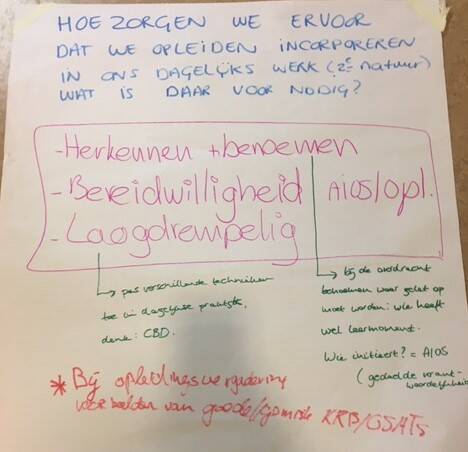 HOE ZORGEN WE ERVOOR
DAT WE OPLEIDEN INCORPOREREN
IN ONS DAGELIJKS WERK (2e natuur)
WAT IS DAAR VOOR NODIG?
- Herkennen + benoemen
- Bereidwilligheid AIOS/opl.
- Laagdrempelig
→ pas verschillende technieken
toe in dagelijkse praktijk,
denk: CBD.
→ bij de overdracht
benoemen waar gelet op
moet worden: wie heeft
wel leermoment.
Wie initieert? = AIOS
(gedeelde verant-
woordelijkheid
* Bij opleidingsvergadering
voorbeelden van goede/ KRB/OSATs